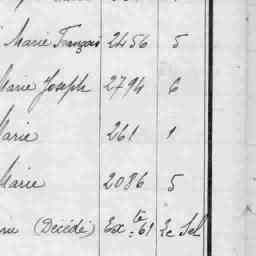 Marie François 2456 5
Marie Joseph 2794 6
Marie 261 1
Marie 2086 5
(Décédé) Ex te 61 2e Sel